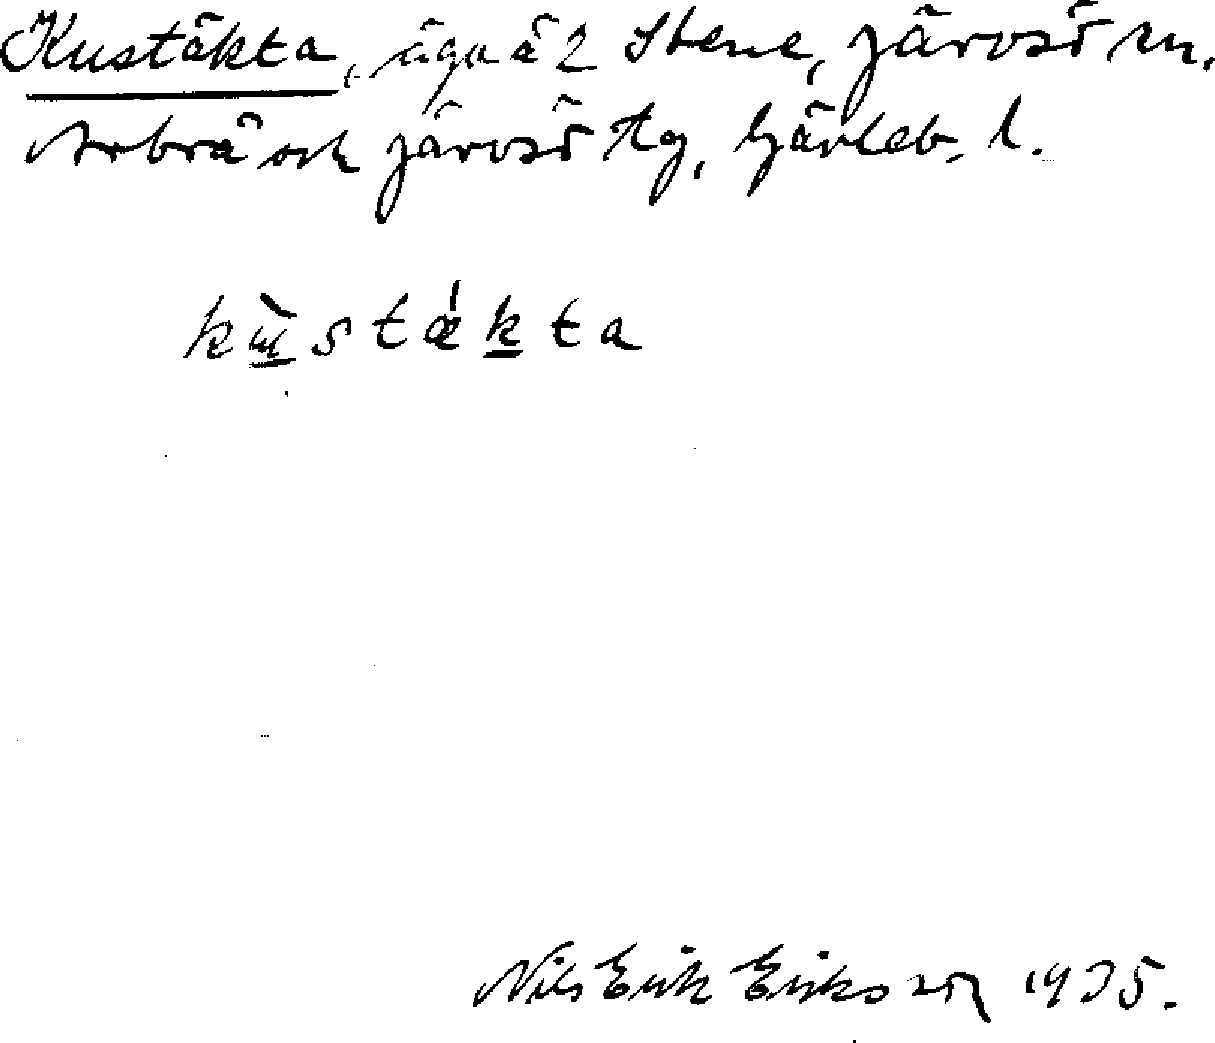 Kustäkta, äga å 2 Stene, Järvsö sn.
Arbrå och Järvsö tg, Gävleb. l.
kùstǽkta
Nils Erik Eriksson 1935.